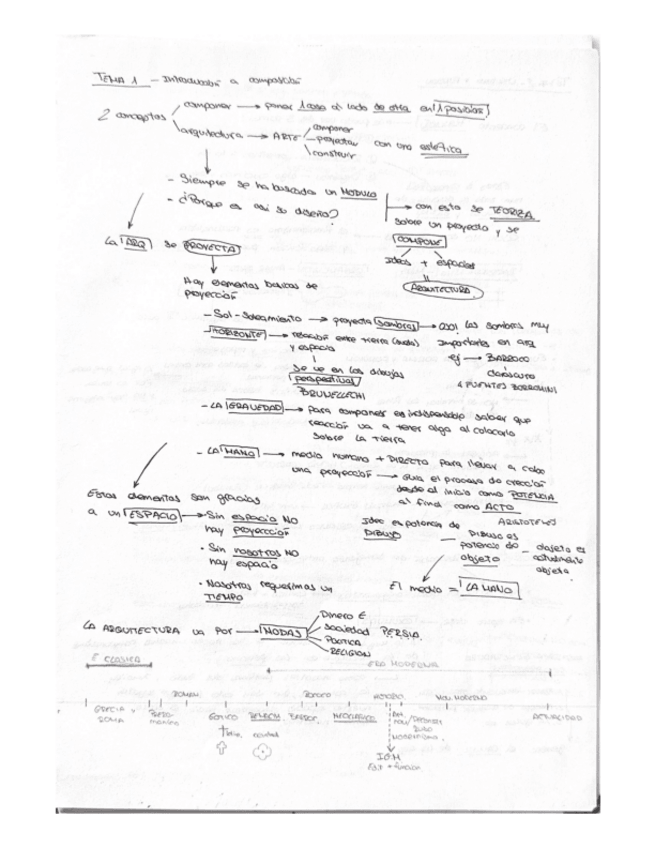 TEMA 1 - Introducción a composición
2 conceptos
componer → poner 1 cosa al lado de otra en 1 posición
arquitectura → ARTE
componer
proyectar
construir
con una estética
- Siempre se ha buscado un MODULO
- ¿Porque es así su diseño?
→ con esto se TEORIZA
sobre un proyecto y se
COMPONE
Ideas + espacios
ARQUITECTURA
La ARQ se PROYECTA
Hay elementos básicos de
proyección
- Sol - Soleamiento → proyecta sombras → las sombras muy
importantes en arq
ej → BARROCO
claroscuro
4 FUENTES BORROMINI
- HORIZONTE → relación entre tierra (suelo)
y espacio
Se ve en los dibujos
perspectivas
BRUNELLECHI
- LA GRAVEDAD → para componer es indispensable saber que
reacción va a tener algo al colocarlo
sobre la tierra
- LA MANO → medio humano + DIRECTO para llevar a cabo
una proyección → Guia el proceso de creación
desde el inicio como POTENCIA
al final como ACTO
ARISTOTELES
Estos elementos son gracias
a un ESPACIO → Sin espacio NO
hay proyección
• Sin nosotros NO
hay espacio
• Nosotros requerimos un
TIEMPO
Idea es potencia de
DIBUJO
- Dibujo es
potencia de
objeto
- objeto es
actualmente
objeto.
El medio = LA MANO
LA ARQUITECTURA va POR → MODAS
Dinero €
Sociedad PERSIA
POLITICA
RELIGION
E CLASICA
ERA MODERNA
GRECIA y
ROMA
ROMAN
GOTICO
RENACIM
BARROCO
NEOCLASICO
MOV MODERNO
ACTUALIDAD
MODERNISMO